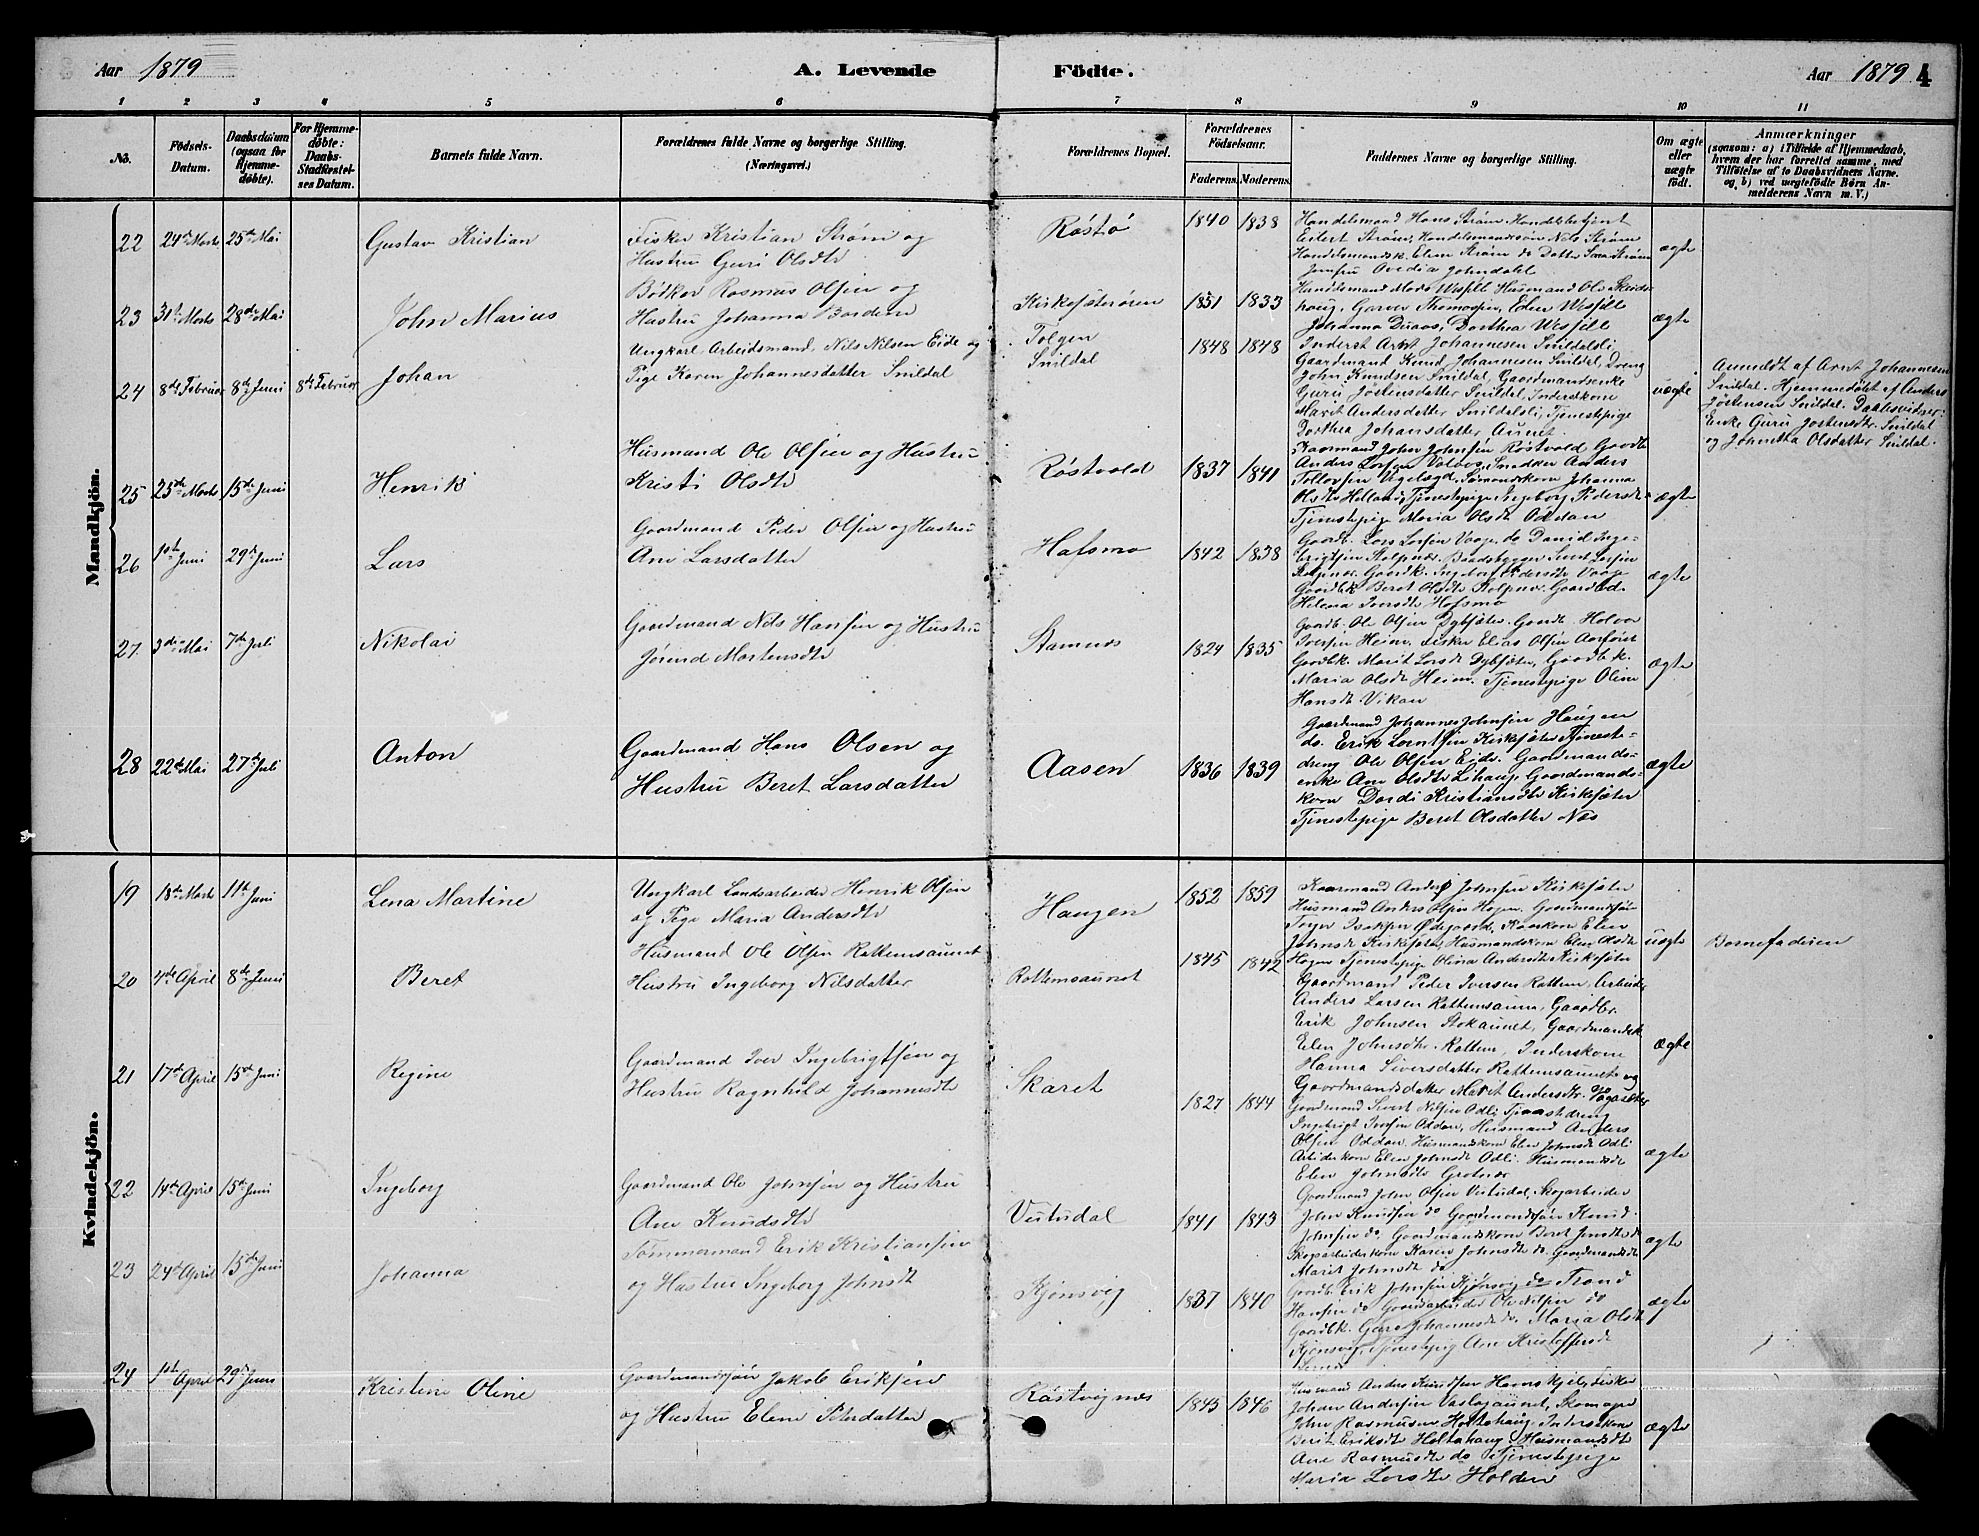 Aar 1879 A. Levende Födte. Aar 1879 4
1 2 3 4 5 6 7 8 9 10 11
No. Födsels-Datum. Daabsdatum (ogsaa for Hjemmedöbte). For Hjemmedöbte: Daabs-Stadfæstelses Datum. Barnets fulde Navn. Forældrenes fulde Navne og borgerlige Stilling. (Næringsvei.) Forældrenes Bopæl. Forældrenes Födselsaar. Faderens. Moderens. Faddernes Navne og borgerlige Stilling. Om ægte eller uægte födt. Anmærkninger (saasom: a) i Tilfælde af Hjemmedaab, hvem der har forrettet samme, med Tilföielse af to Daabsvidners Navne. og b) ved uægtefödte Börn Anmelderens Navn m. V.)
Mandkjön.
22 24de Marts 25de Mai Gustav Kristian
Fisker Kristian Strøm og
Hustru Guri Olsdtr
Røstø 1840 1838
Handelsmand Hans Strøm. Handelsbetjent
Eilert Strøm, Handelsmandssøn Nils Strøm
Handelsmandsk. Elen Strøm do Datter Sara Strøm
Jomfru Avedia Johndahl
ægte
23 31te Marts 28de Mai John Marius
Bødker Rasmus Olsen og
Hustru Johanna
Kirkesæterøren 1851 1833
Johanna Duaas, Dorthea Wesfell
ægte
24 8de Februar 8de Juni 8de Februar Johan
Ungkarl Arbeidsmand, Nils Nilsen Eide og
Pige Karen Johannesdatter Snildal
Tolgen
Snildal
1848 1848
Inderst Arnt Johannesen Snildalsli
Gaardmand Knud Johannesen Snildal, Dreng
John Knudsen Snildal, Gaardmandsenke
Guru Jöstensdatter Snildal, Inderstkone
Marit Andersdatter Snildalsli, Tjenestepige
Dorthea Johansdatter Aunet
uægte
Anmeldt af Arnt Johannesen
Snildal. Hjemmedøbt af Anders
Jöstensen Snildal. Daabsvidner:
Enke Guru Jostensdtr. Snildal
og Johnetha Olsdatter Snildal.
25 25de Marts 15de Juni Henrik
Husmand Ole Olsen og Hustru
Kristi Olsdtr
Røstvold 1837 1841
Kaarmand John Johnsen Røstvold Gaardbr
Anders Larsen Valaas, Snedker Anders
Olsdtr Helland, Tjenestepige Ingeborg Pedersdtr
Tjenestepige Maria Olsdtr Oddan
ægte
26 1ste Juni 29de Juni Lars
Gaardmand Peder Olsen og Hustru
Ane Larsdatter
Hafsmo 1842 1838
Gaardb. Lars Larsen Vaage, do David Inge-
brigtsen Stolpnæs. Baadbygger Sivert Larsen
Stolpnæs. Gaardk. Ingeborg Pedersdtr Vaage
Gaardbk Beret Olsdtr Stolpnæs. Gaardbd.
Helena Iversdtr Hafsmo
ægte
27. 3die Mai 7de Juli Nikolai
Gaardmand Nils Hansen og Hustru
Jörend Mortensdtr
Stamnes 1824 1835
Gaardb. Ole Olsen Dybsæter, Gaardb Halvor
Iversen Heim. Fisker Elias Olsen
Gaardbk. Marit Larsdtr Dybsæter, Gaardbk.
Maria Olsdtr Heim. Tjenestepige Oline
Hansdtr Vikan
ægte
28 22de Mai 27de Juli Anton
Gaardmand Hans Olsen og
Hustru Beret Larsdatter
Aasen 1836 1839
Gaardmand Johannes Johnsen Haugen
do. Erik Larntsen Kirksæter Tjeneste-
dreng Ole Olsen Eide. Gaardmands-
enke Ane Olsdtr Lihaug, Gaardmands-
kone Dordi Kristiansdtr Kirksæter
Tjenestepige Beret Olsdatter Næs
ægte
Kvindekjön.
19 18de Marts 11te Juni Lena Martine
Ungkarl Landsarbeider Henrik Olsen
og Pige Maria Andersdtr
Haugen 1852 1859
Kaarmand Anders Johnsen Kirksæter
Husmand Anders Olsen Hagen. Gaardmandssøn
Johnsdtr Kirksæter, Husmandskone Elen Olsdtr
Hagen Tjenestepige Olina Andersdtr Kirksæter
uægte Barnefaderen
20 4de April 8de Juni Beret
Husmand Ole Olsen Rottemsaunet
Hustru Ingeborg Nilsdatter
Rottemsaunet 1845 1842
Gaardmand Peder Iversen Rottem, Arbeider
Anders Larsen Rottemsaunet, Gaardbr.
Erik Johnsen Stokaunet, Gaardmandsk
Elen Johnsdtr. Rottem, Inderskone
Hanna Siversdatter Rottemsaunet og
Gaordmandsdatter Marit Andersdtr.
ægte
21 17de April 15de Juni Regine
Gaardmand Iver Ingebrigtsen og
Hustru Ragnhild Johannesdtr
Skaret 1827 1844
Gaardmand Sivert Nilsen Odli, Tjenestedreng
Ingebrigt Iversen Oddan, Husmand Anders
Olsen Oddan. Husmandskone Elen Johnsdtr Odli
Arbiderkone Elen Johnsdtr Odli. Husmandsdtr
Elen Johnsdtr Grotnes
ægte
22 14de April 15de Juni Ingeborg
Gaardmand Ole Johnsen og Hustru
Ane Knudsdtr
Vutudal 1841 1843
Gaardmand John Olsen Vutudal, Skogarbeider
John Knudsen do Gaardmandssøn Knud
Johnsen do, Gaardmandskone Beret Jensdtr do
Skogarbeiderkone Karen Johnsdtr do. Gaardmandsdtr
Marit Johnsdtr do
ægte
23 24de April 15de Juni Johanna
Tømmermand Erik Kristiansen
og Hustru Ingeborg Johnsdt
Kjønsvig 1837 1840
Gaardb. Erik Johnsen Kjønsvig do Trond
Hansen do Gaardarbeider Ole Nilsen do
Gaardbk. Guro Johannesdtr do. Maria Olsdtr
Kjønsvig, Tjenestepig Ane Kristoffersdtr
ægte
24 1ste April 29de Juni Kristine Oline
Gaardmandssøn Jakob Eriksen
og Hustru Elene Petersdatter
Røstvignes 1845 1846
Husmand Anders Knudsen Hamskjel, Fisker
Johan Andersen Vaslagaunet, Skomager
John Rasmusen Holtahaug, Inderskone
Berit Eriksdtr Holtahaug Husmandsdtr
Ane Rasmusdtr do Tjenestepige
Maria Larsdtr Holden
ægte